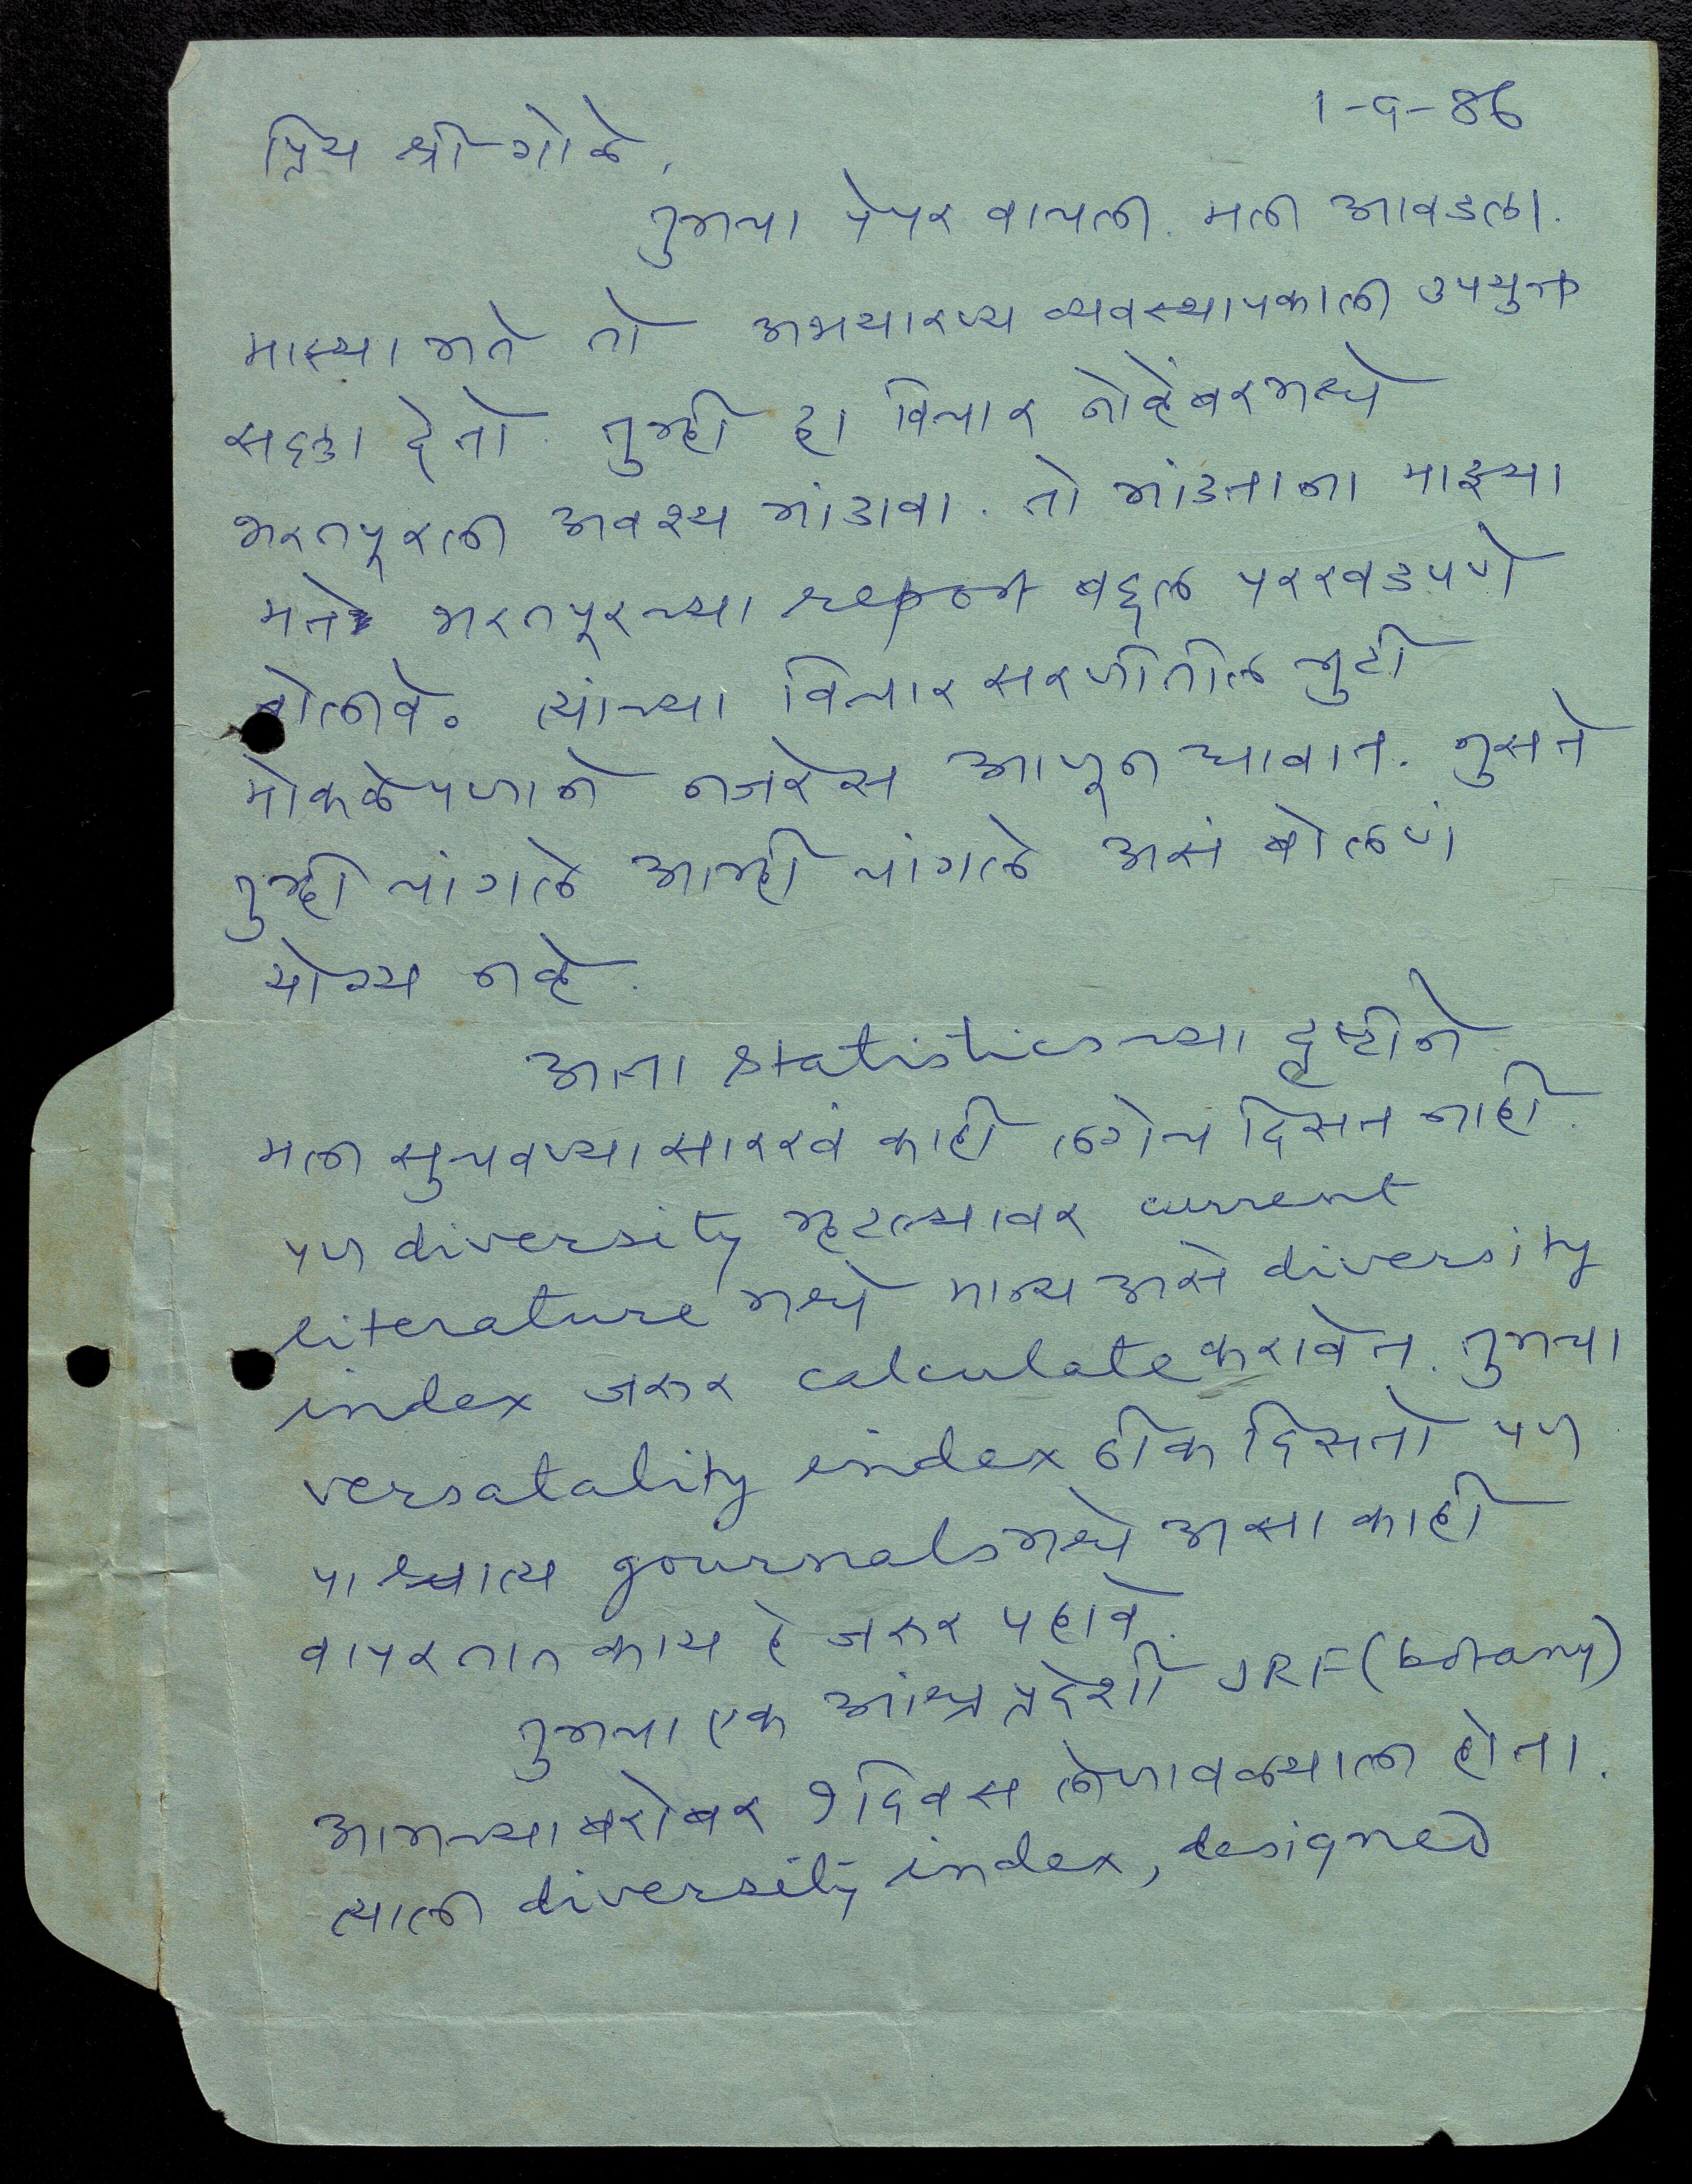 1-9-86
प्रिय श्री गोळे,
तुमचा पेपर वाचला. मला आवडला.
माझ्या मते तो अभयारण्य व्यवस्थापकाला उपयुक्त
सल्ला देतो. तुम्ही हा विचार नोव्हेंबरमध्ये
भरतपूरला अवश्य मांडावा. तो मांडताना माझ्या
मते भरतपूरच्या report बद्दल परखडपणे
बोलावे. त्यांच्या विचारसरणीतील त्रुटी
मोकळेपणाने नजरेस आणून द्याव्यात. नुसते
तुम्ही चांगले आम्ही चांगले असं बोलणं
योग्य नव्हे.
आता statisticsच्या दृष्टीने
मला सुचवण्यासारखं काही लगेच दिसत नाही.
पण diversity म्हटल्यावर current
literature मध्ये मान्य असे diversity
index जरूर calculate करावेत. तुमचा
versatality index ठीक दिसतो पण
पाश्चात्य journals मध्ये असा काही
वापरतात काय हे जरूर पहावे.
तुमचा एक आंध्रप्रदेशी JRF (botany)
आमच्या बरोबर १ दिवस लोणावळ्याला होता.
त्याला diversity index, designed